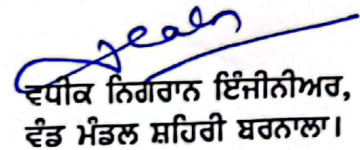 ਵਧੀਕ ਨਿਗਰਾਨ ਇੰਜੀਨੀਅਰ,
ਵੰਡ ਮੰਡਲ ਸ਼ਹਿਰੀ ਬਰਨਾਲਾ।